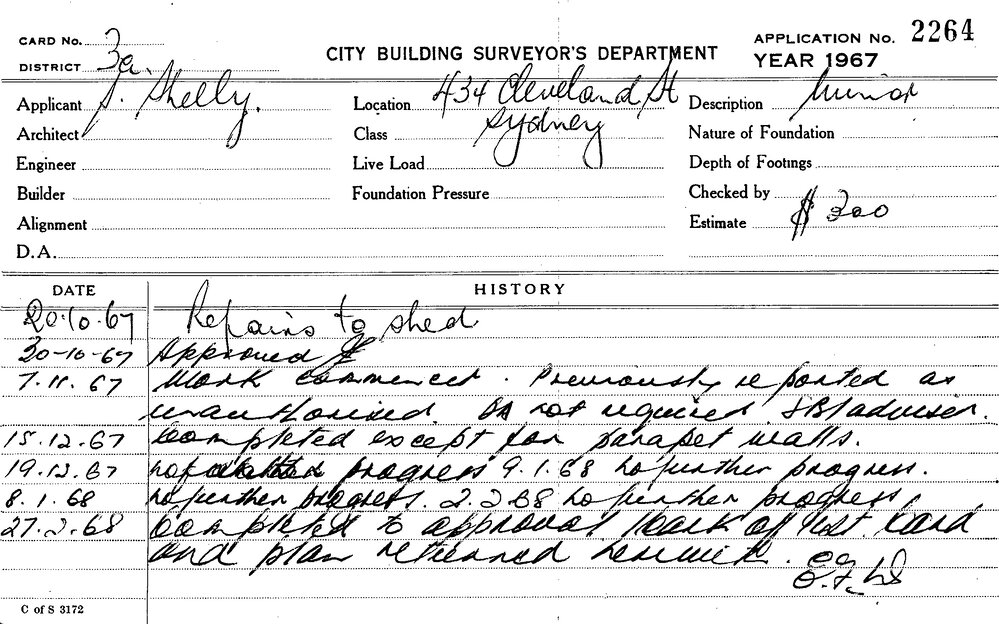 CARD No. 3a.
DISTRICT
CITY BUILDING SURVEYOR'S DEPARTMENT
APPLICATION No. 2264
YEAR 1967
Applicant J. Shelly.
Location 434 Cleveland St
Sydney
Description Minor
Architect
Class
Nature of Foundation
Engineer
Live Load
Depth of Footings
Builder
Foundation Pressure
Checked by
Alignment
Estimate $ 300
D.A.
DATE HISTORY
20.10.67 Repairs to shed
30-10-67 Approved
7.11.67 Work commenced. Previously reported as
unauthorised DA not required
15.12.67 Completed except for parapet walls.
19.12.67 No progress 9.1.68 No further progress.
8.1.68 No further progress. 2.2.68 No further progress
27.2.68 Completed to approval, Card
and plan returned herewith.
C of S 3172